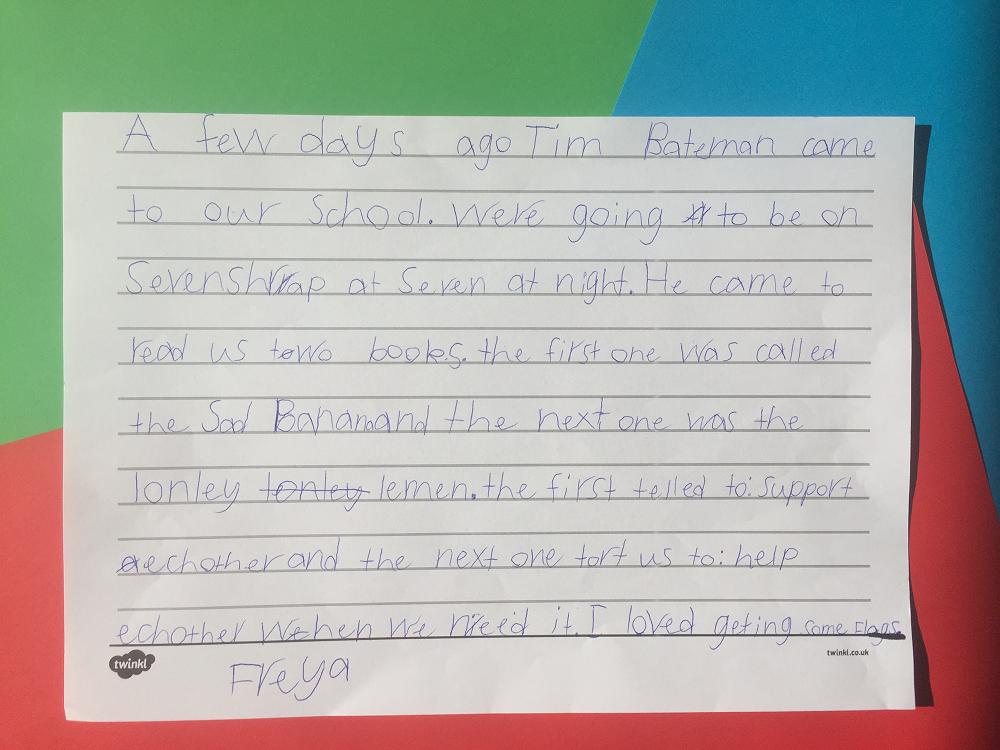 A few days ago Tim Bateman came
to our School. Were going to be on
Sevensharp at Seven at night. He came to
read us two books. the first one was called
the Sad Banana and the next one was the
lonley lonley lemen. the first telled to: support
echother and the next one tort us to: help
echother when we need it. I loved geting some
Freya
twinkl
twinkl.co.uk